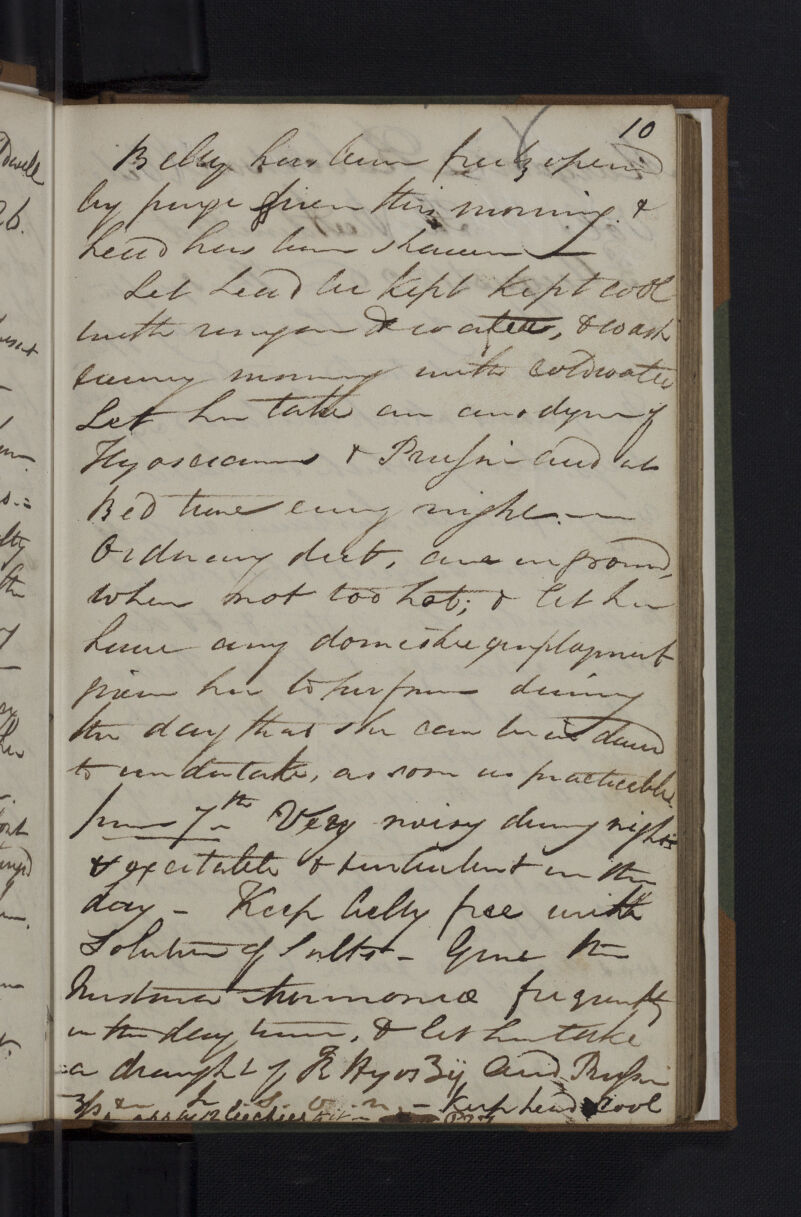 10
Belly has been freely opened
by purge given this morning &
head has been shaven —
Let head be kept kept cool
with vinegar & water, & wash
every morning with cold water
Let her take an anodyne of
Hyosciamus & Prussic acid at
Bed time every night. —
Ordinary diet, air in ground,
when not too hot; & let her
have any domestic employment
given her to perform during
the day that she can be induced
to undertake, as soon as practicable.
June 7th Very noisy during night
& excitable & turbulent in the
day - Keep belly free with
Solution of Salts - Give the
frequently
in the day time, & let her take
a draught of Hyos ʒij Acid Prussic
h. s. o. n. - Keep head cool
12 leeches